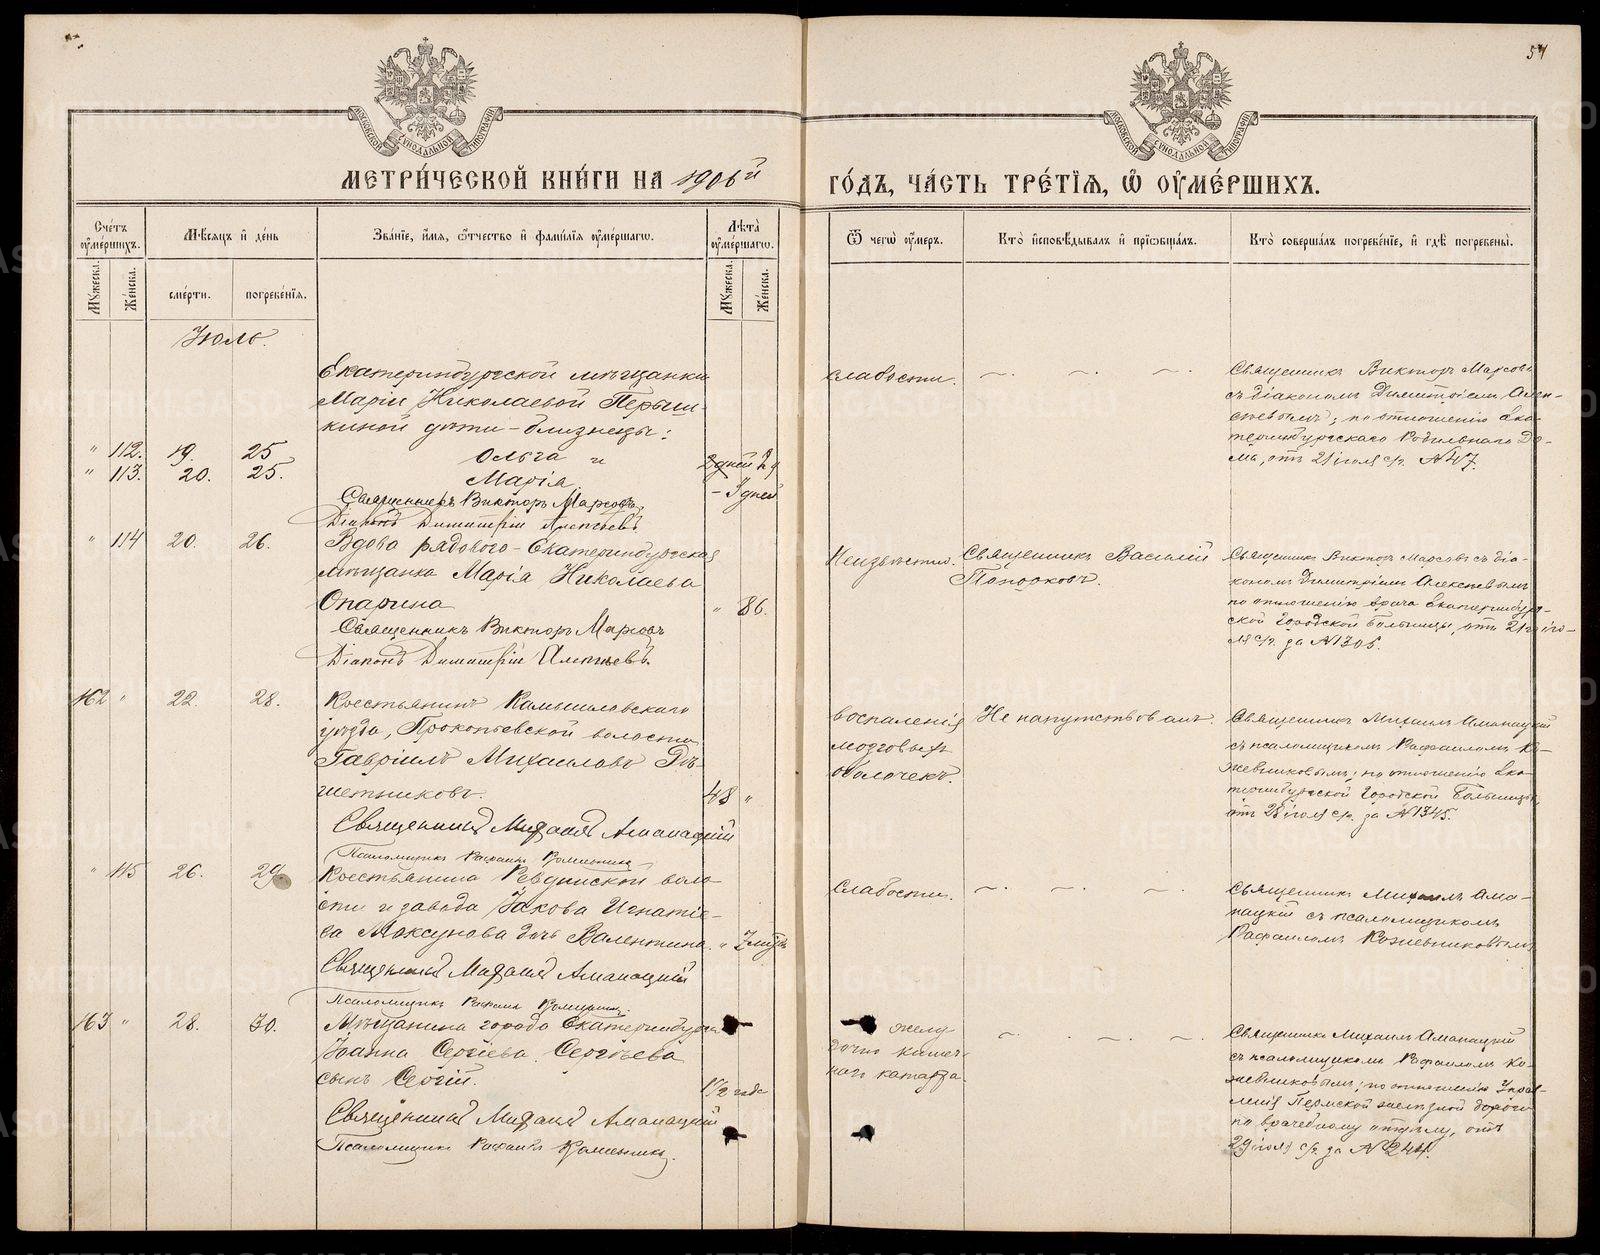 54
МОСКОВСКОЙ СѴНОДАЛЬНОЙ ТИПОГРАФІИ
МОСКОВСКОЙ СѴНОДАЛЬНОЙ ТИПОГРАФІИ
МЕТРИ́ЧЕСКОЙ КНИ́ГИ НА 1906й
ГО́ДЪ, ЧА́СТЬ ТРЕ́ТІѦ, Ѡ҆ ОУ҆МЕ́РШИХЪ.
Сче́тъ оу҆ме́ршихъ.
Мѣ́сѧцъ и҆ де́нь
Зва́нїе, и҆́мѧ, ѻ҆́тчество и҆ фами́лїѧ оу҆ме́ршагѡ.
Лѣ́та оу҆ме́ршагѡ.
Мꙋ́жеска. Же́нска.
сме́рти. погребе́нїѧ.
Мꙋ́жеска. Же́нска.
Ѿ чегѡ̀ оу҆́меръ.
Кто̀ и҆сповѣ́дывалъ и҆ прїѡбща́лъ.
Кто̀ соверша́лъ погребе́нїе, и҆ гдѣ̀ погребены̀.
Іюль.
Екатеринбургской мѣщанки
Маріи Николаевой Перыш-
киной дѣти-близнецы:
" 112. 19. 25 Ольга и 2 д
" 113. 20. 25. Марія. - 3 дней
Священникъ Викторъ Марсовъ
Діаконъ Димитрій Алексѣевъ
слабости.
Священникъ Викторъ Марсовъ
съ діакономъ Димитріемъ Алек-
сѣевымъ; по отношенію Ека-
теринбургскаго Родильнаго До-
ма, отъ 21 іюля с/г. № 47.
" 114 20. 26. Вдова рядового-Екатеринбургская
мѣщанка Марія Николаева
Опарина " 86.
Священникъ Викторъ Марсовъ
Діаконъ Димитрій Алексѣевъ.
Неизвѣстно. Священникъ Василій
Попорковъ.
Священникъ Викторъ Марсовъ съ діа-
кономъ Димитріемъ Алексѣевымъ
по отношенію врача Екатеринбург-
ской Городской Больницы, отъ 21го ію-
ля с/г. за № 1305.
162 " 22. 28. Крестьянинъ Камышловскаго
уѣзда, Прокопьевской волости
Гавріилъ Михаиловъ Рѣ-
шетниковъ. 48 "
Священникъ Михаилъ Аманацкій
Псаломщикъ Рафаилъ Кожевниковъ
воспаленія
мозговыхъ
оболочекъ.
Не напутствованъ.
Священникъ Михаилъ Аманацкій
съ псаломщикомъ Рафаиломъ Ко-
жевниковымъ; по отношенію Ека-
теринбургской Городской Больницы,
отъ 28 іюля с/г. за № 1345.
" 115 26. 29. Крестьянина Ревдинской воло-
сти и завода Іакова Игнатіе-
ва Моксунова дочь Валентина. "
Священникъ Михаилъ Аманацкій
Псаломщикъ Рафаилъ Кожевниковъ.
слабости.
Священникъ Михаилъ Ама-
нацкій съ псаломщикомъ
Рафаиломъ Кожевниковымъ
163 " 28. 30. Мѣщанина города Екатеринбурга
Іоанна Сергіева Сергѣева
сынъ Сергій. 1 1/2 года
Священникъ Михаилъ Аманацкій
Псаломщикъ Рафаилъ Кожевниковъ.
желу
дочно кишеч-
наго катарра.
Священникъ Михаилъ Аманацкій
съ псаломщикомъ Рафаиломъ Ко-
жевниковымъ; по отношенію Управ-
ленія Пермской желѣзной дороги
по врачебному отдѣлу, отъ
29 іюля с/г. за № 244.
METRIKI.GASO-URAL.RU